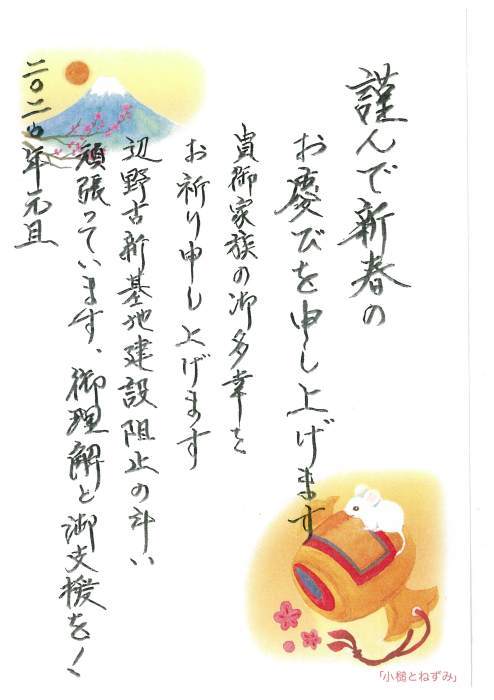 謹んで新春の
お慶びを申し上げます
貴御家族の御多幸を
お祈り申し上げます
辺野古新基地建設阻止の斗い
頑張っています、御理解と御支援を！
二〇二〇年元旦
「小槌とねずみ」